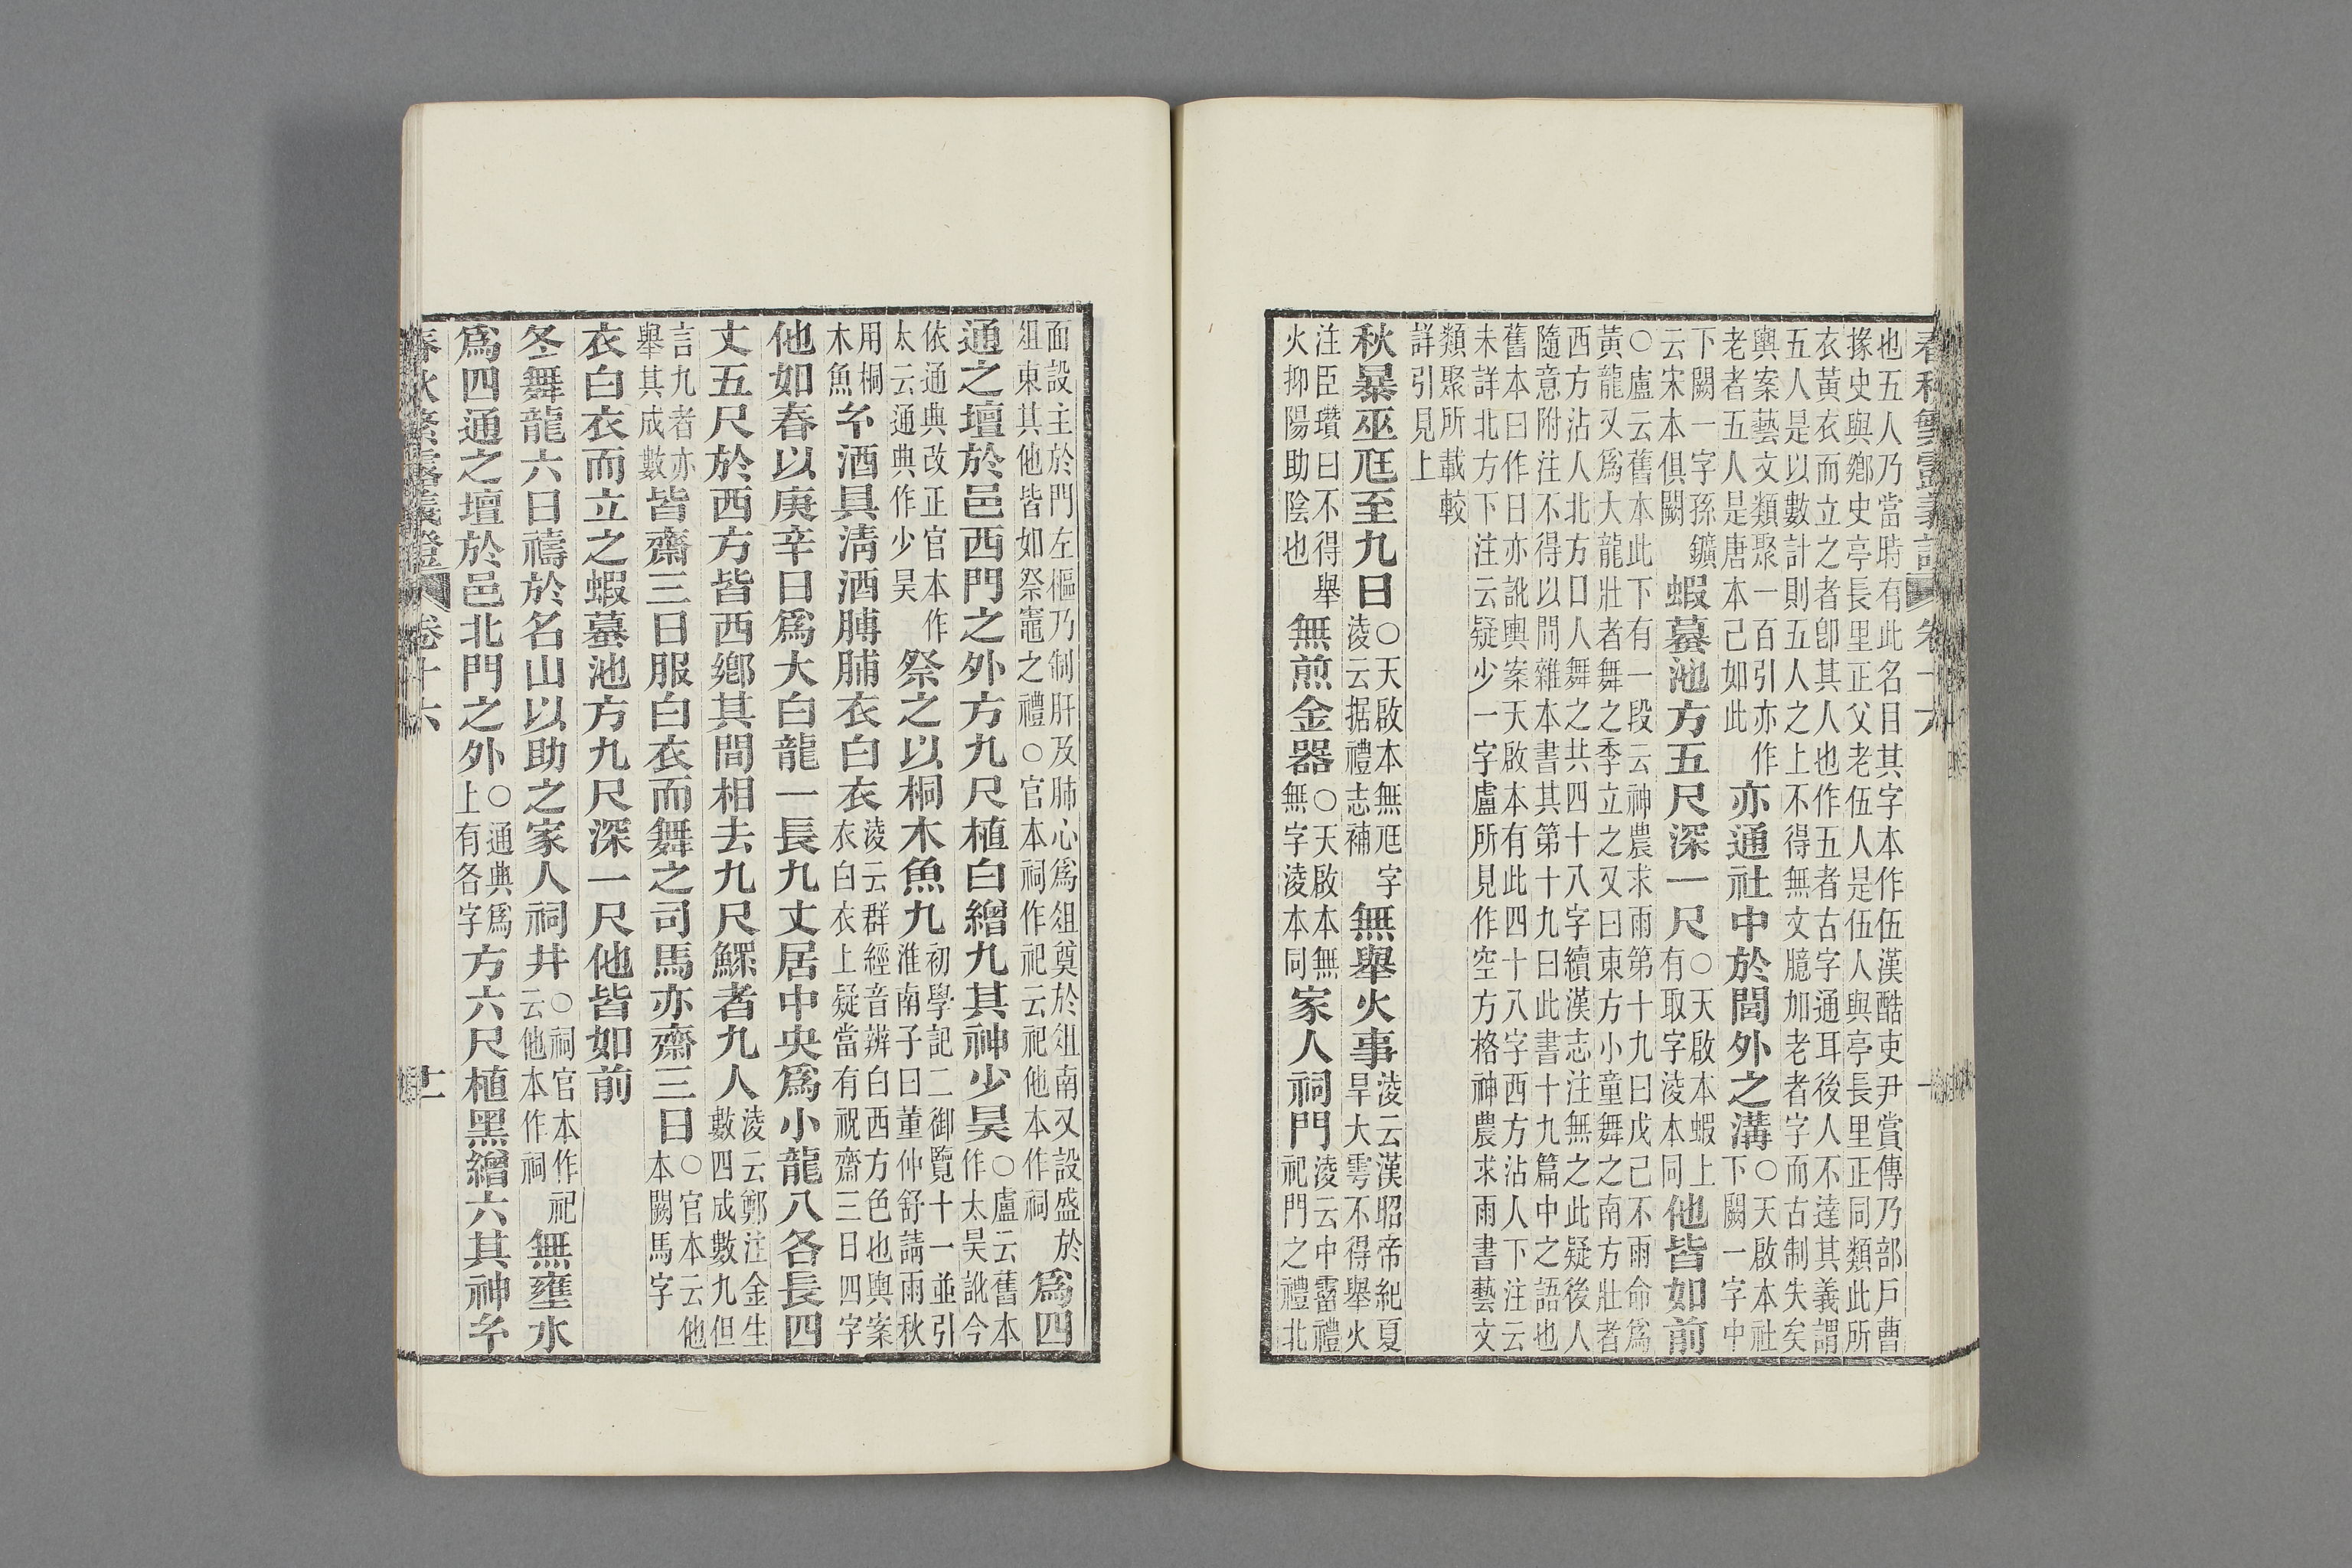 春秋繁露義證 卷十六
也五人乃當時有此名目其字本作伍漢酷吏尹賞傳乃部戶曹
掾史與鄉史亭長里正父老伍人是伍人與亭長里正同類此所
衣黃衣而立之者卽其人也作五者古字通耳後人不達其義謂
五人是以數計則五人之上不得無文臆加老者字而古制失矣
輿案藝文類聚一百引亦作老者五人是唐本已如此亦通社中於閭外之溝○天啟本社下闕一字中
下闕一字孫鑛云宋本俱闕蝦蟇池方五尺深一尺○天啟本蝦上有取字淩本同他皆如前
○盧云舊本此下有一段云神農求雨第十九曰戊己不雨命爲
黃龍又爲大龍壯者舞之季立之又曰東方小童舞之南方壯者
西方沾人北方口人舞之共四十八字續漢志注無之此疑後人
隨意附注不得以問雜本書其第十九曰此書十九篇中之語也
舊本曰作日亦訛輿案天啟本有此四十八字西方沾人下注云
未詳北方下注云疑少一字盧所見作空方格神農求雨書藝文
類聚所載較
詳引見上
秋暴巫尫至九日○天啟本無尫字淩云据禮志補無舉火事淩云漢昭帝紀夏旱大雩不得舉火
注臣瓚曰不得舉火抑陽助陰也無煎金器○天啟本無無字淩本同家人祠門淩云中霤禮祀門之禮北
面設主於門左樞乃制肝及肺心爲俎奠於俎南又設盛於俎東其他皆如祭竈之禮○官本祠作祀云祀他本作祠爲四
通之壇於邑西門之外方九尺植白繒九其神少昊○盧云舊本作太昊訛今
依通典改正官本作太云通典作少昊祭之以桐木魚九初學記二御覽十一並引淮南子曰董仲舒請雨秋
用桐木魚𤣥酒具淸酒膊脯衣白衣淩云群經音辨白西方色也輿案衣白衣上疑當有祝齋三日四字
他如春以庚辛日爲大白龍一長九丈居中央爲小龍八各長四
丈五尺於西方皆西鄉其間相去九尺鰥者九人淩云鄭注金生數四成數九但
言九者亦舉其成數皆齋三日服白衣而舞之司馬亦齋三日○官本云他本闕馬字
衣白衣而立之蝦蟇池方九尺深一尺他皆如前
冬舞龍六日禱於名山以助之家人祠井○祠官本作祀云他本作祠無壅水
爲四通之壇於邑北門之外○通典爲上有各字方六尺植黑繒六其神𤣥
春秋繁露義證 卷十六 十一